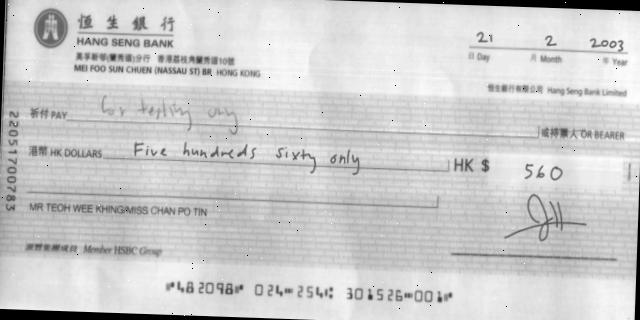 恒生銀行
HANG SENG BANK
美孚新邨(蘭秀道)分行 香港荔枝角蘭秀道10號
MEI FOO SUN CHUEN (NASSAU ST) BR, HONG KONG
21 2 2003
日 Day 月 Month 年 Year
恒生銀行有限公司 Hang Seng Bank Limited
祈付 PAY for testing only 或持票人 OR BEARER
港幣 HK DOLLARS Five hundreds sixty only HK $ 560
MR TEOH WEE KHING/MISS CHAN PO TIN
滙豐集團成員 Member HSBC Group
22051700783
⑈482098⑈ 024⑉254⑆ 301526⑉001⑈